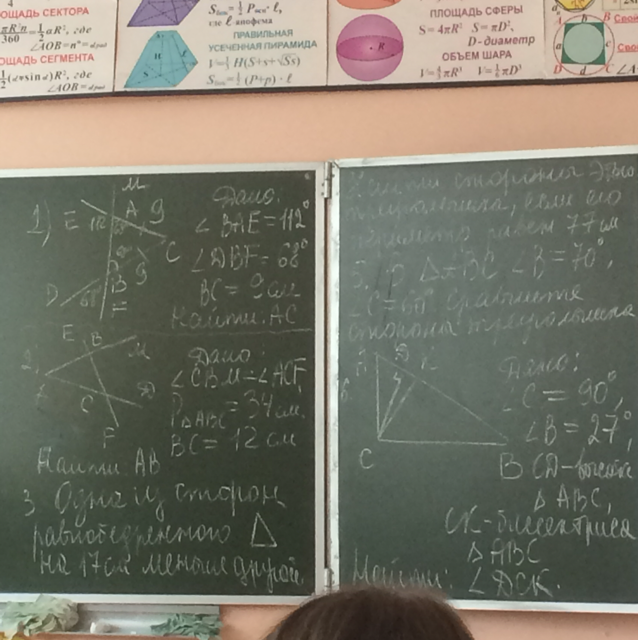 ОЩАДЬ СЕКТОРА
∠AOB = n°
ОЩАДЬ СЕГМЕНТА
где ℓ-апофема
ПРАВИЛЬНАЯ
УСЕЧЕННАЯ ПИРАМИДА
H
S
R
ПЛОЩАДЬ СФЕРЫ
S = 4πR² S = πD²,
D - диаметр
ОБЪЕМ ШАРА
1)
M
E
A
C
D
B
F
Дано:
∠BAE = 112°
∠DBF = 68°
BC = 9 см
Найти: AC
E
B
M
A
C
F
Дано:
∠CBM = ∠ACF,
P△ABC = 34 см.
BC = 12 см
Найти AB
3. Одна из сторон
равнобедренного △
на 17 см меньше другой
Найти стороны этого
треугольника, если его
периметр равен 77 см
∠B = 70°,
∠C = 60° Сравните
стороны треугольника
C
B
Дано:
∠C = 90°,
∠B = 27°,
CD - высота
△ABC,
CK - биссектриса
△ABC
Найти: ∠DCK.